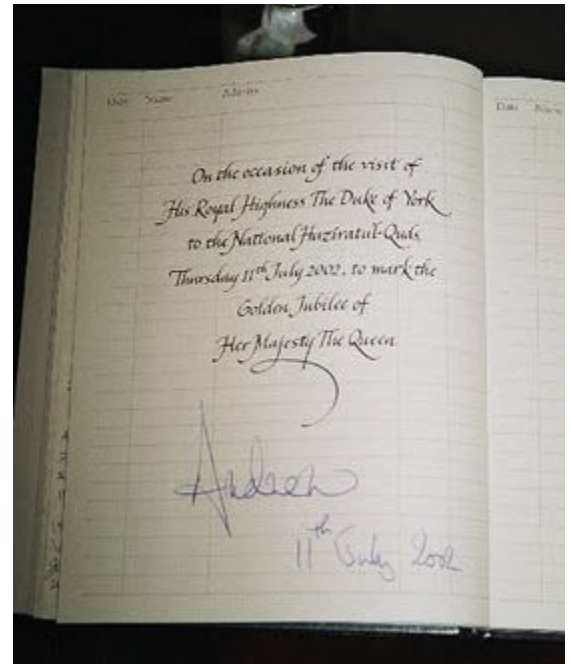 Date Name Address
Date Name
On the occasion of the visit of
His Royal Highness The Duke of York
to the National Haziratul-Quds
Thursday 11th July 2002, to mark the
Golden Jubilee of
Her Majesty The Queen
Andrew
11th July 2002